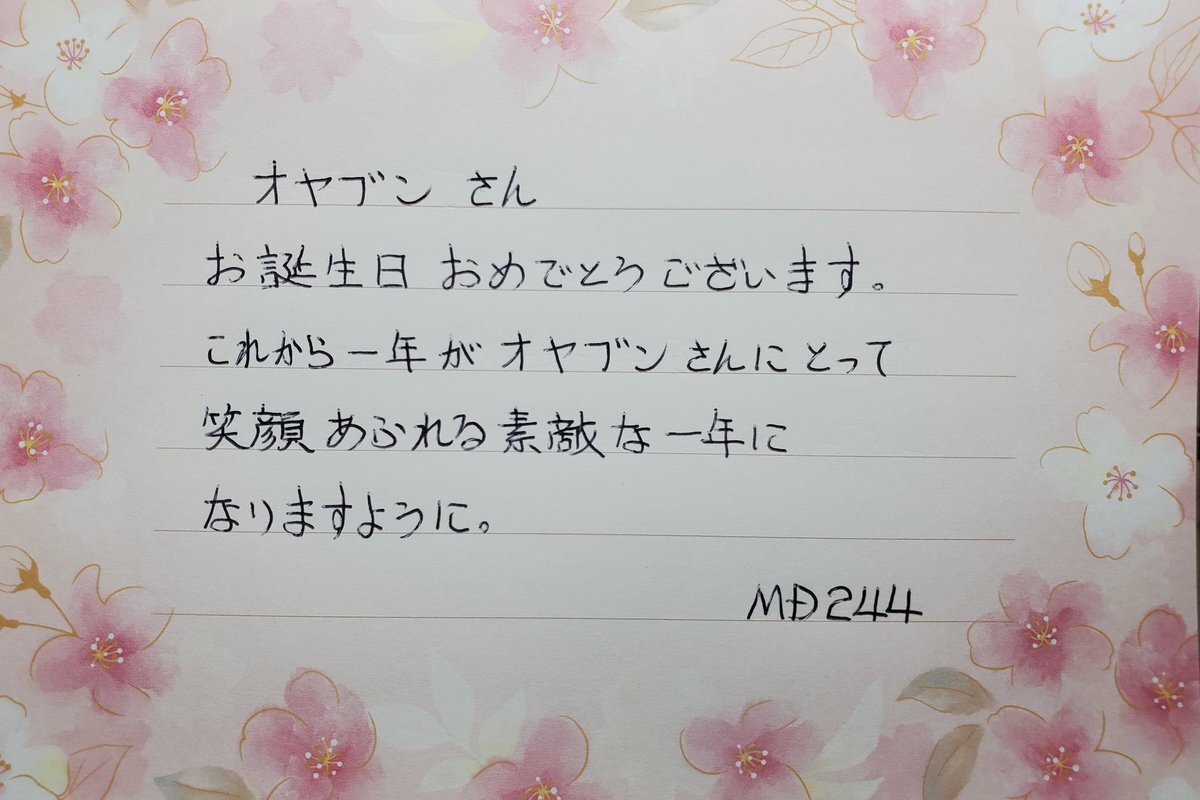 オヤブン さん
お誕生日 おめでとうございます。
これから一年が オヤブン さんにとって
笑顔あふれる素敵な一年に
なりますように。
MD244